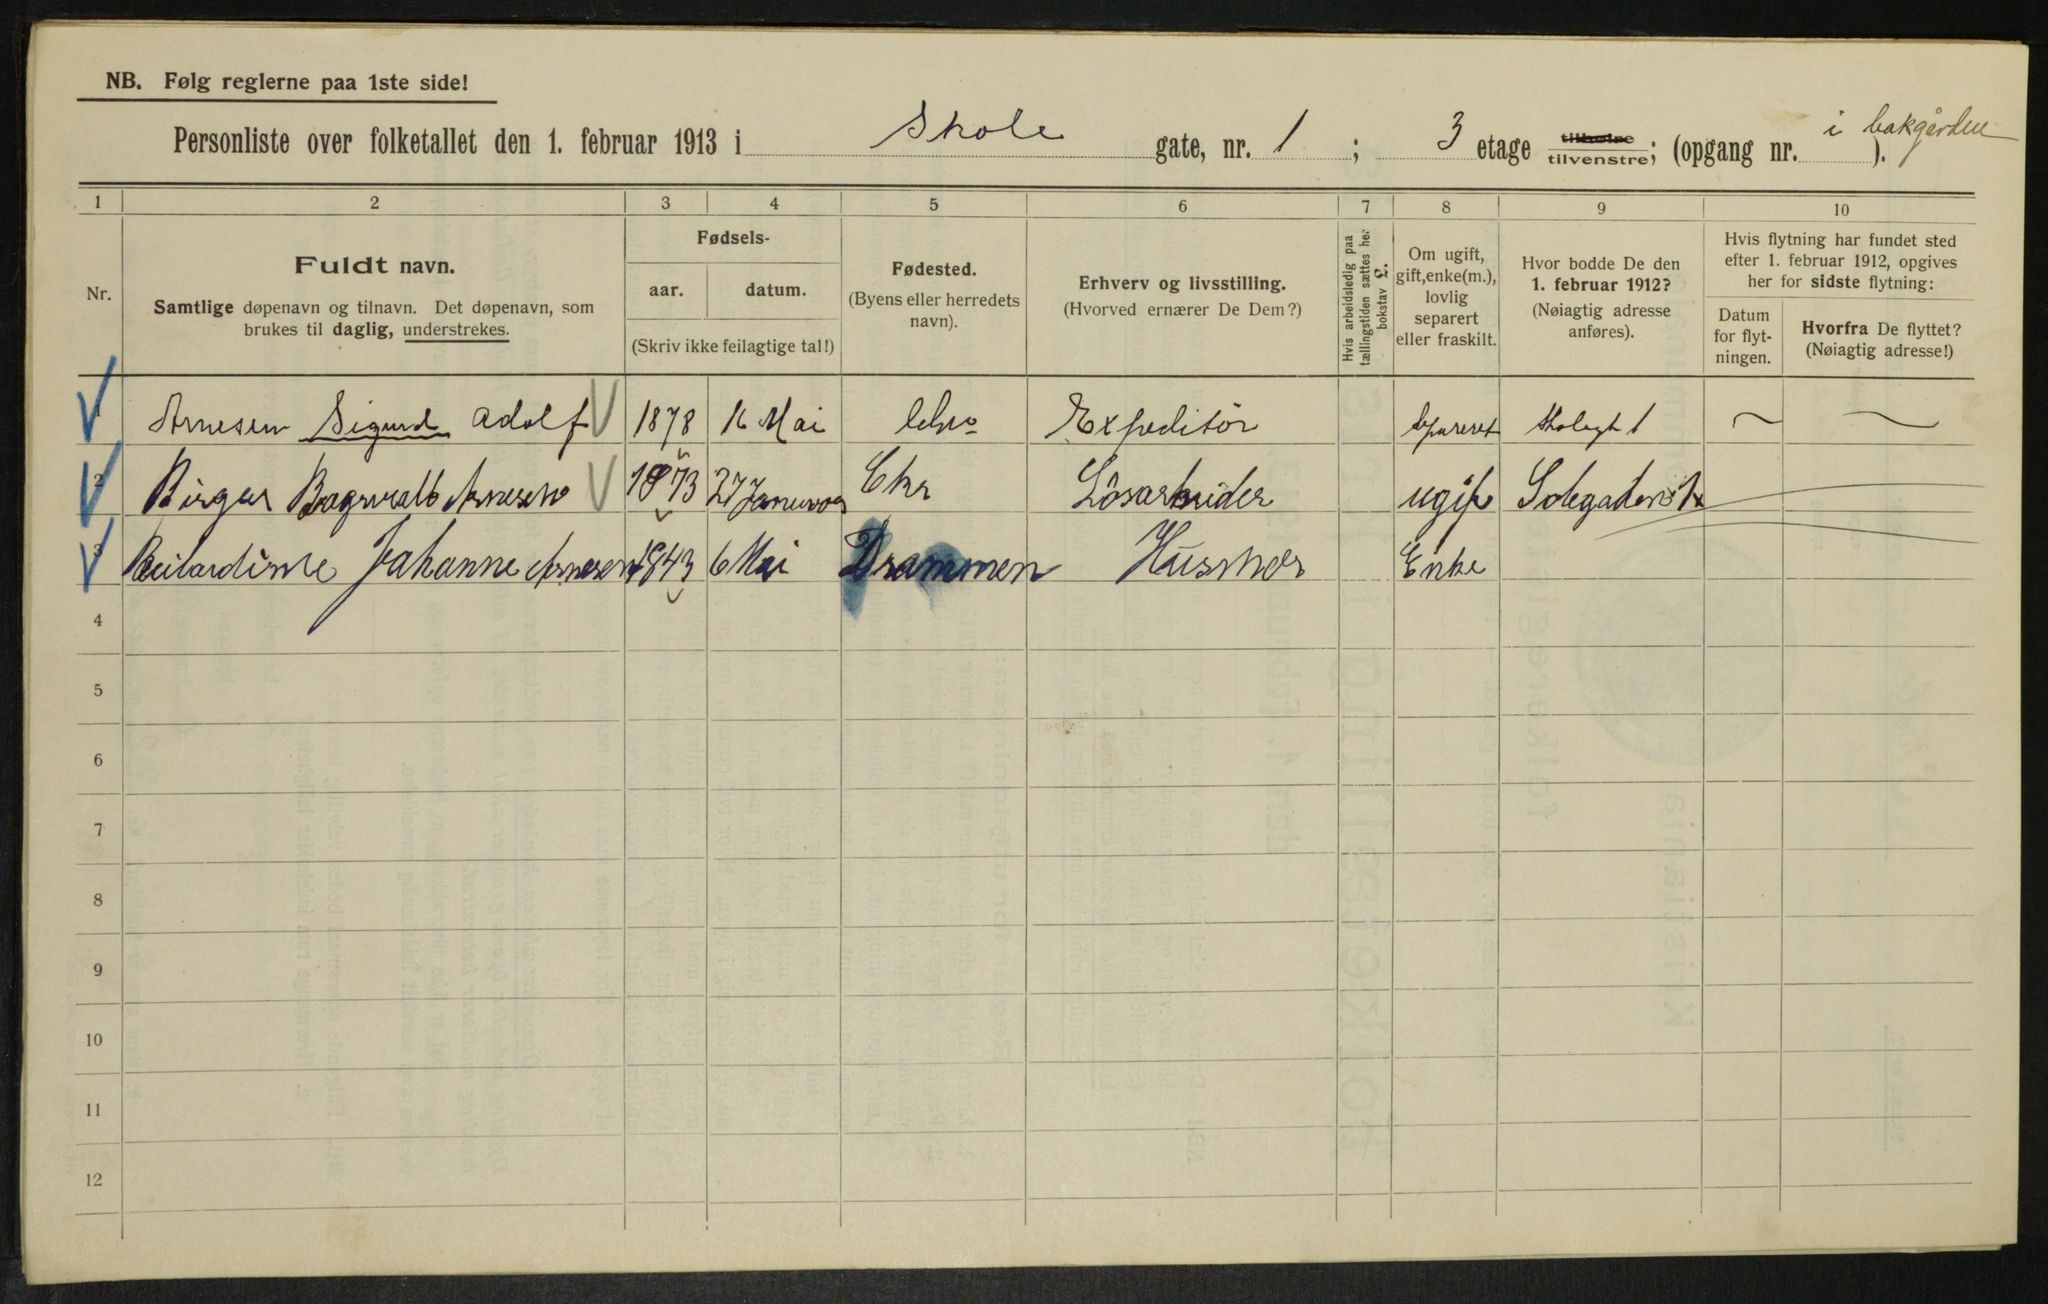 NB. Følg reglerne paa 1ste side!
Personliste over folketallet den 1. februar 1913 i Skole gate, nr. 1 ; 3 etage tilhøire tilvenstre; (opgang nr. i bakgården ).
1 2 3 4 5 6 7 8 9 10
Nr.
Fuldt navn.
Samtlige døpenavn og tilnavn. Det døpenavn, som
brukes til daglig, understrekes.
Fødsels-
aar. datum.
(Skriv ikke feilagtige tal!)
Fødested.
(Byens eller herredets
navn).
Erhverv og livsstilling.
(Hvorved ernærer De Dem?)
Hvis arbeidsledig paa
tællingstiden sættes her
bokstav L.
Om ugift,
gift, enke(m.),
lovlig
separert
eller fraskilt.
Hvor bodde De den
1. februar 1912?
(Nøiagtig adresse
anføres).
Hvis flytning har fundet sted
efter 1. februar 1912, opgives
her for sidste flytning:
Datum
for flyt-
ningen.
Hvorfra De flyttet?
(Nøiagtig adresse!)
1 Arnesen Sigurd Adolf 1878 16 Mai Expeditör Skolegt 1
2 Birger Arnesen 1873 27 Januar Chr Lösarbeider ugift
3 Johanne Arnesen 1843 6 Mai Drammen Husmor Enke
4
5
6
7
8
9
10
11
12